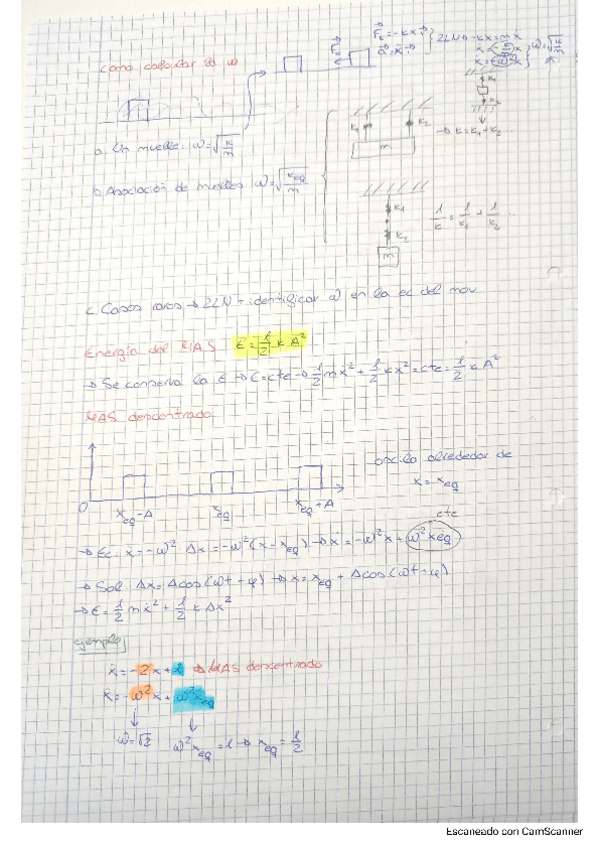 Como calcular la ω
F⃗e
F⃗e = -kx i⃗ } 2LN → -kx = mẍ
a⃗ = ẍ i⃗
ẍ = -k/m x } ω = √(k/m)
ẍ = -ω² x
a. Un muelle: ω = √(k/m)
k1 k2
m
→ k = k1 + k2 ...
b. Asociación de muelles ω = √(keq/m)
k1
k2
m
1/k = 1/k1 + 1/k2 ...
c. Casos raros → 2LN → identificar ω en la ec del mov
Energía del MAS E = 1/2 k A²
→ Se conserva la E → E = cte → 1/2 mẋ² + 1/2 kx² = cte = 1/2 k A²
MAS descentrado
oscila alrededor de
x = xeq
O xeq - A xeq xeq + A
cte
→ Ec. ẍ = -ω² · Δx = -ω² (x - xeq) → ẍ = -ω² x + ω² xeq
→ Sol Δx = A cos(ωt - φ) → x = xeq + A cos(ωt - φ)
→ E = 1/2 mẋ² + 1/2 k Δx²
ejemplo,
ẍ = -2x + 1 → MAS descentrado
ẍ = -ω² x + ω² xeq
ω = √2 ω² xeq = 1 → xeq = 1/2
Escaneado con CamScanner